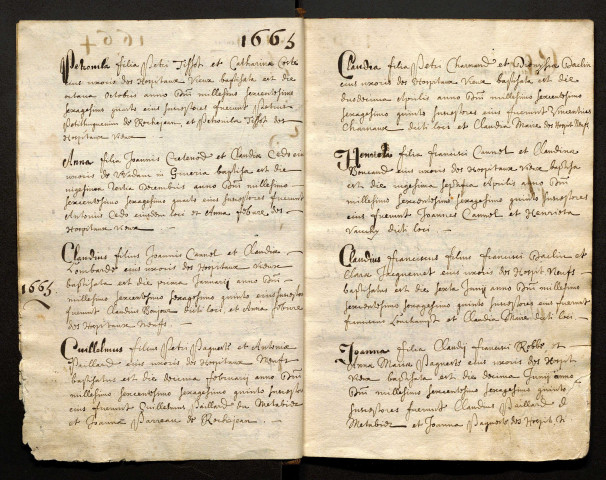 1665
Petronila filia Petri Tissot et Catharina
eius uxoris des Hospitaux Vieux baptisata est die
octava octobris anno Dni millesimo sexcentesimo
sexagesimo quarto eius susceptores fuerunt
de Rochejean, et Petronila Tissot des
Hospitaux Vieux
Anna filia Joannis et Claudia Cedo eius
uxoris de in baptisata est die
vigesima tertia decembris anno Dni millesimo
sexcentesimo sexagesimo quarto eius susceptores fuerunt
Antonius Cedo eiusdem loci et Anna febure des
Hospitaux Vieux
1665
Claudius filius Joannis Cannel et Claudia
Lombarde eius uxoris des Hospitaux Vieux
baptisatus est die prima Januarij anno Dni
millesimo sexcentesimo sexagesimo quinto eius susceptores
fuerunt Claudius Bonjour dicti loci et Anna febure
des Hospitaux Neufs
Guillelmus filius Petri Paguette et Antonia
Paillard eius uxoris des Hospitaux Neufs
baptisatus est die decima februarij anno Dni
millesimo sexcentesimo sexagesimo quinto susceptores
eius fuerunt Guillelmus Paillard de Metabiez
et Joanna Parreau de Rochejean
Claudia filia Petri Charnaud et Dionysia Baclin
eius uxoris des Hospitaux Vieux baptisata est die
duodecima Aprilis anno Dni millesimo sexcentesimo
sexagesimo quinto susceptores eius fuerunt Vincentius
Charnaux dicti loci et Claudia Maire des Hospit Neufs
Henriola filia francisci Cannel et Claudina
eius uxoris des Hospitaux Vieux baptisa
est die vigesima septima Aprilis anno Dni
millesimo sexcentesimo sexagesimo quinto susceptores
eius fuerunt Joannes Cannel et Henrieta
dicti loci
Claudius franciscus filius francisci Baclin et
Clara Jacquenet eius uxoris des Hospit Neufs
baptisatus est die sexta Junij anno Dni millesimo
sexcentesimo sexagesimo quinto susceptores eius fuerunt
franciscus et Claudia Maire dicti loci
Joanna filia Claudij francisci Robbe et
Anna Maria Paguette eius uxoris des Hospit
Vieux baptisata est die decima Junij anno
Dni millesimo sexcentesimo sexagesimo quinto
susceptores fuerunt Claudius Paillard de
Metabiez et Joanna Paguette des Hospit. N